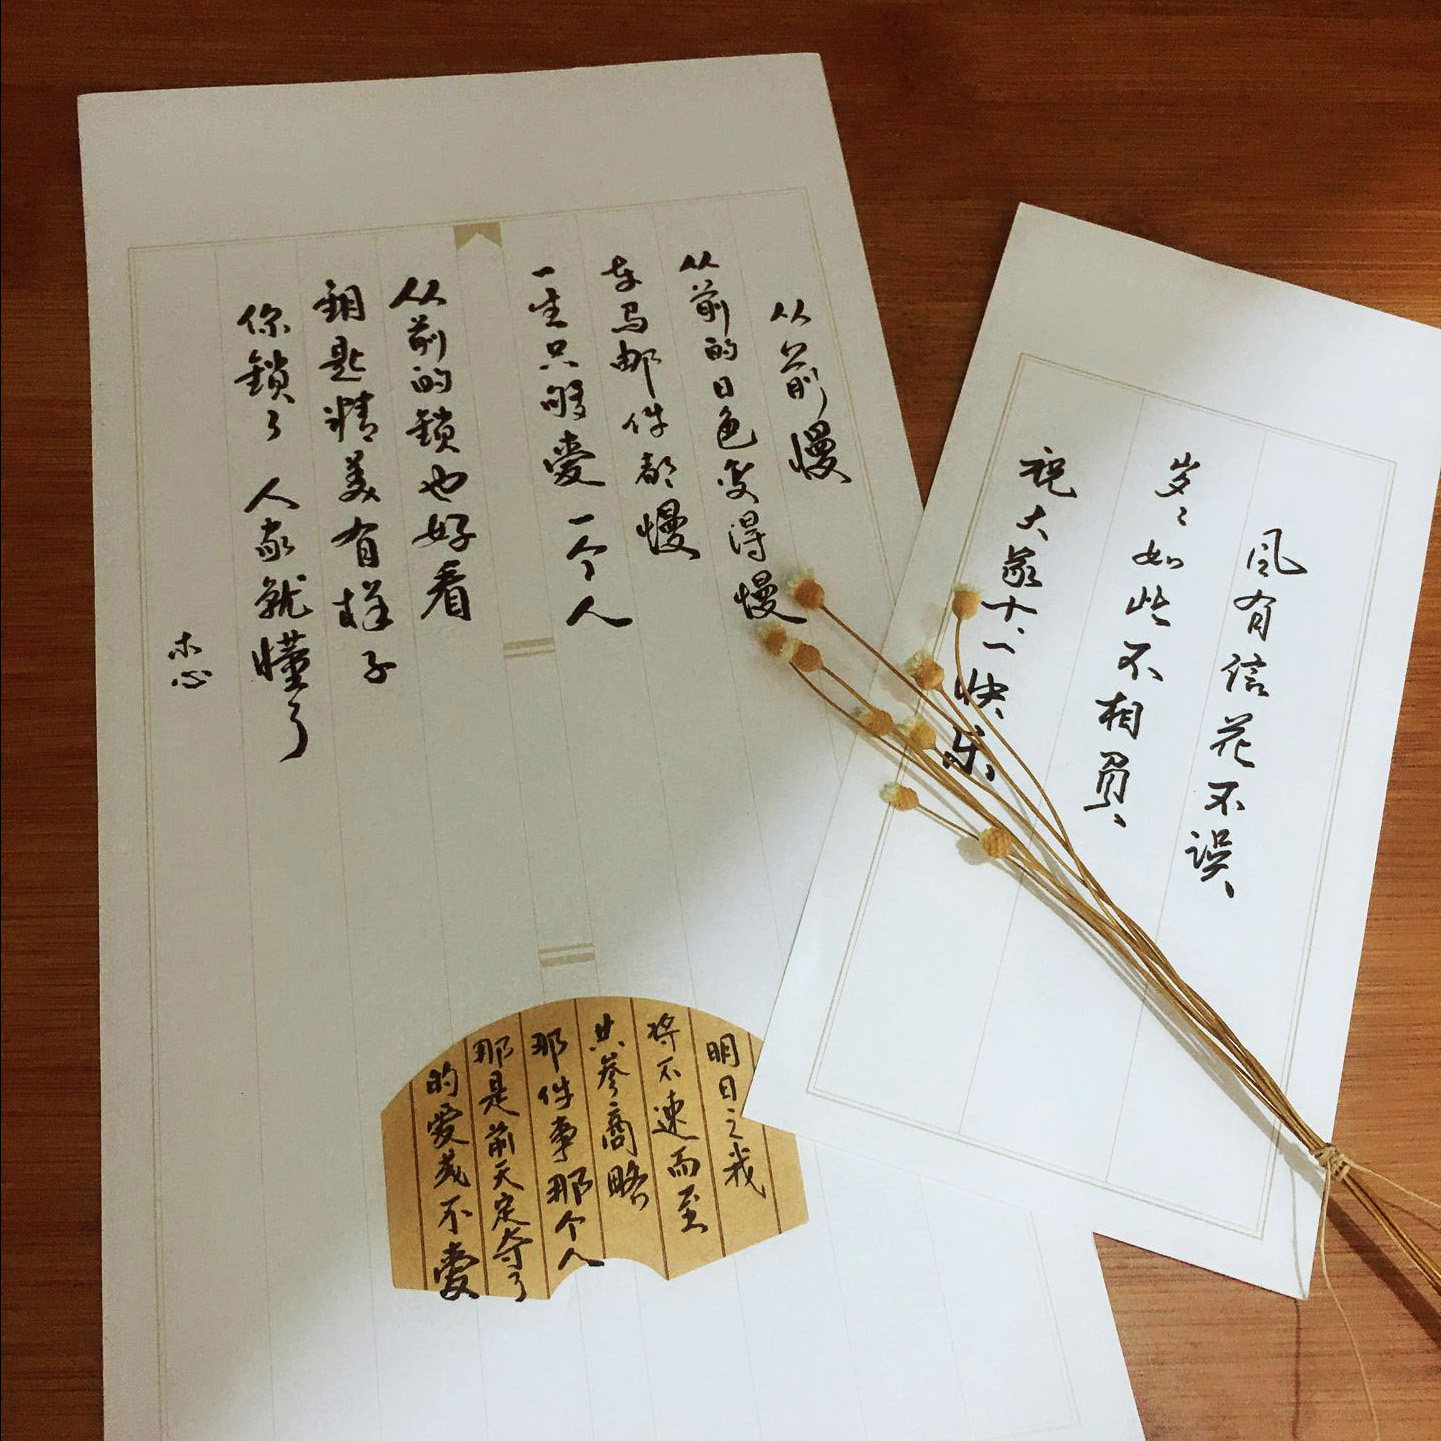 从前慢
从前的日色变得慢
车马邮件都慢
一生只够愛一个人
从前的鎖也好看
钥匙精美有样子
你鎖了 人家就懂了
木心
明日之我
将不速而至
共參商略
那件事那个人
那是前天定夺了
的愛或不愛
风有信花不误
岁々如此不相负
祝大家十一快乐